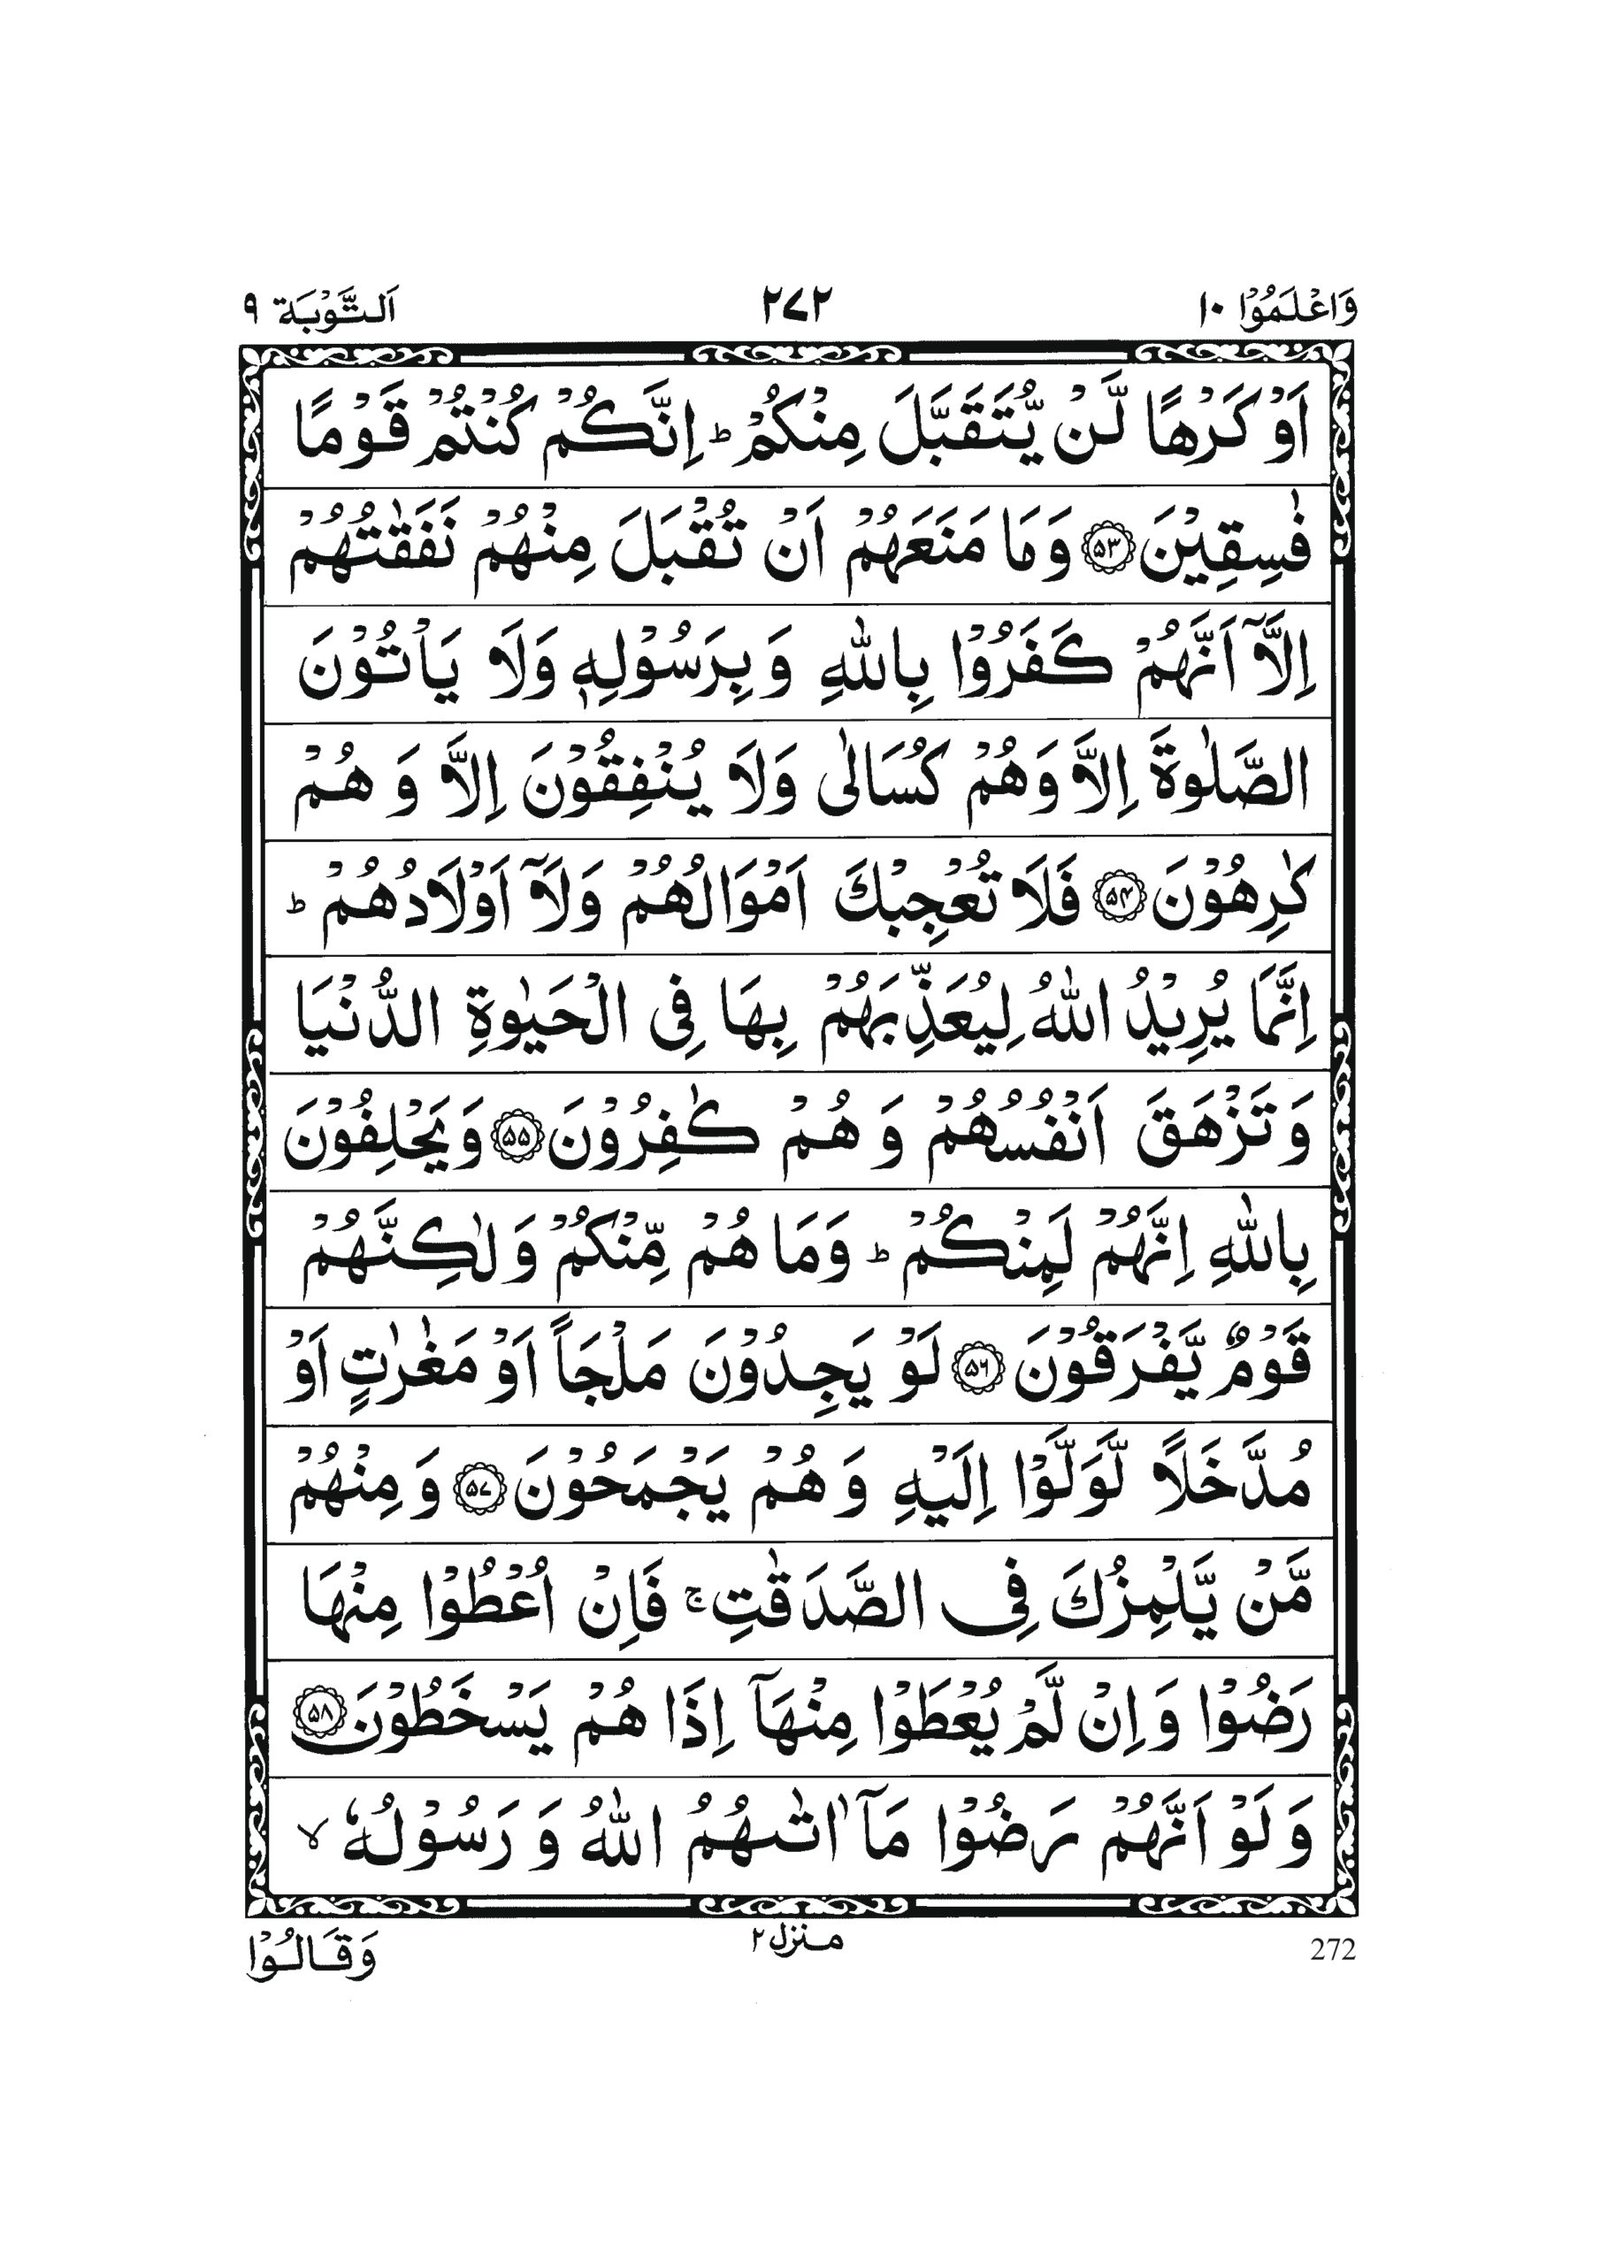 وَاعْلَمُوْۤا ١٠ ٢٧٢ اَلتَّوْبَة ٩
اَوْ كَرْهًا لَّنْ يُّتَقَبَّلَ مِنْكُمْ ؕ اِنَّكُمْ كُنْتُمْ قَوْمًا
فٰسِقِيْنَ ﴿٥٣﴾ وَمَا مَنَعَهُمْ اَنْ تُقْبَلَ مِنْهُمْ نَفَقٰتُهُمْ
اِلَّاۤ اَنَّهُمْ كَفَرُوْا بِاللّٰهِ وَبِرَسُوْلِهٖ وَلَا يَاْتُوْنَ
الصَّلٰوةَ اِلَّا وَهُمْ كُسَالٰى وَلَا يُنْفِقُوْنَ اِلَّا وَهُمْ
كٰرِهُوْنَ ﴿٥٤﴾ فَلَا تُعْجِبْكَ اَمْوَالُهُمْ وَلَاۤ اَوْلَادُهُمْ ؕ
اِنَّمَا يُرِيْدُ اللّٰهُ لِيُعَذِّبَهُمْ بِهَا فِى الْحَيٰوةِ الدُّنْيَا
وَتَزْهَقَ اَنْفُسُهُمْ وَهُمْ كٰفِرُوْنَ ﴿٥٥﴾ وَيَحْلِفُوْنَ
بِاللّٰهِ اِنَّهُمْ لَمِنْكُمْ ؕ وَمَا هُمْ مِّنْكُمْ وَلٰكِنَّهُمْ
قَوْمٌ يَّفْرَقُوْنَ ﴿٥٦﴾ لَوْ يَجِدُوْنَ مَلْجَاً اَوْ مَغٰرٰتٍ اَوْ
مُدَّخَلًا لَّوَلَّوْا اِلَيْهِ وَهُمْ يَجْمَحُوْنَ ﴿٥٧﴾ وَمِنْهُمْ
مَّنْ يَّلْمِزُكَ فِى الصَّدَقٰتِ ۚ فَاِنْ اُعْطُوْا مِنْهَا
رَضُوْا وَاِنْ لَّمْ يُعْطَوْا مِنْهَاۤ اِذَا هُمْ يَسْخَطُوْنَ ﴿٥٨﴾
وَلَوْ اَنَّهُمْ رَضُوْا مَاۤ اٰتٰىهُمُ اللّٰهُ وَرَسُوْلُهٗ ۙ
272 منزل ٢ وَقَالُوْا